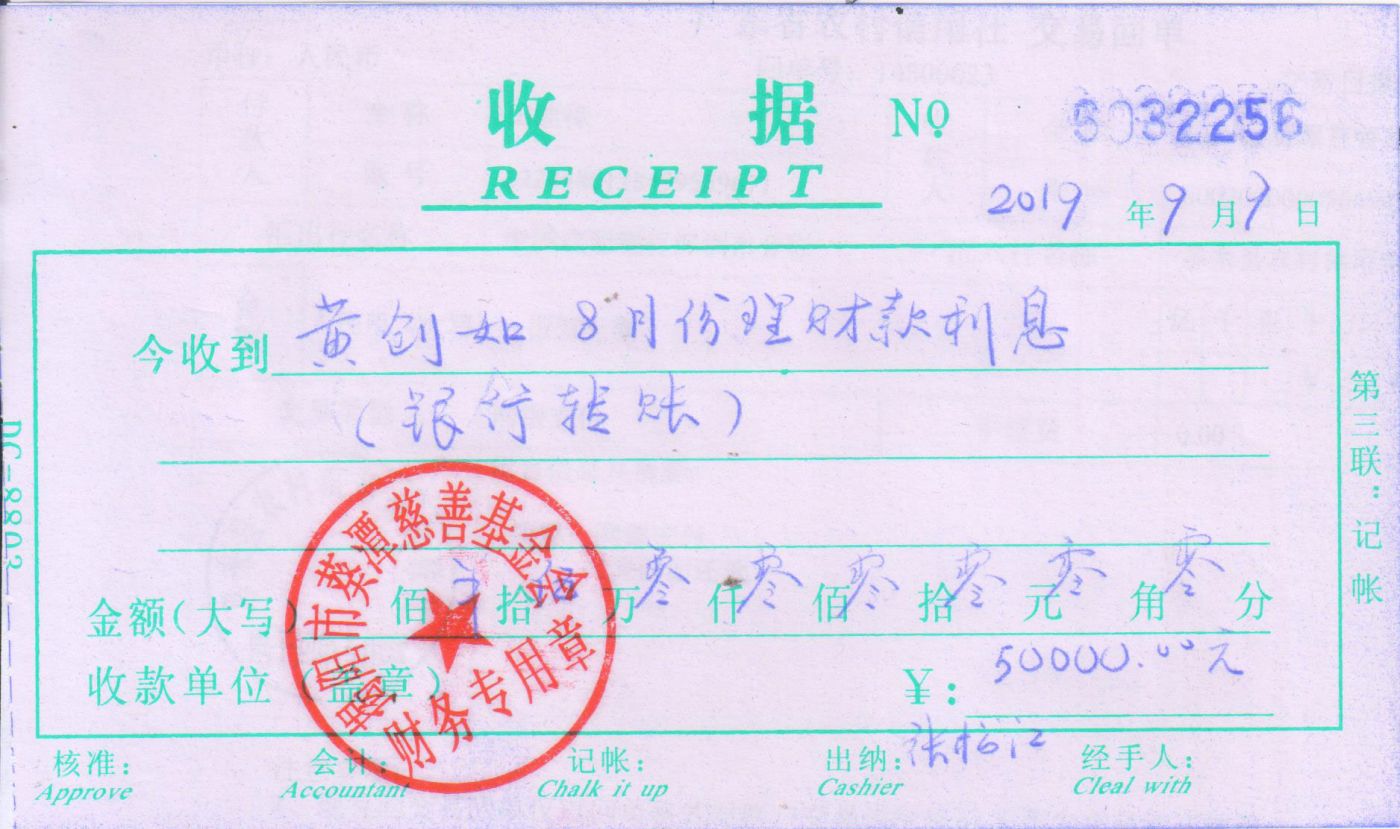 收 据 № 5032256
RECEIPT
2019 年 9 月 9 日
今收到 黄创如 8月份理财款利息
(银行转账)
金额(大写) 佰 拾 伍 万 零 仟 零 佰 零 拾 零 元 零 角 零 分
收款单位(盖章) ¥: 50000.00元
市葵潭慈善基金会
财务专用章
核准: 会计: 记帐: 出纳: 经手人:
Approve Accountant Chalk it up Cashier Cleal with
第三联:记帐
DC-8803